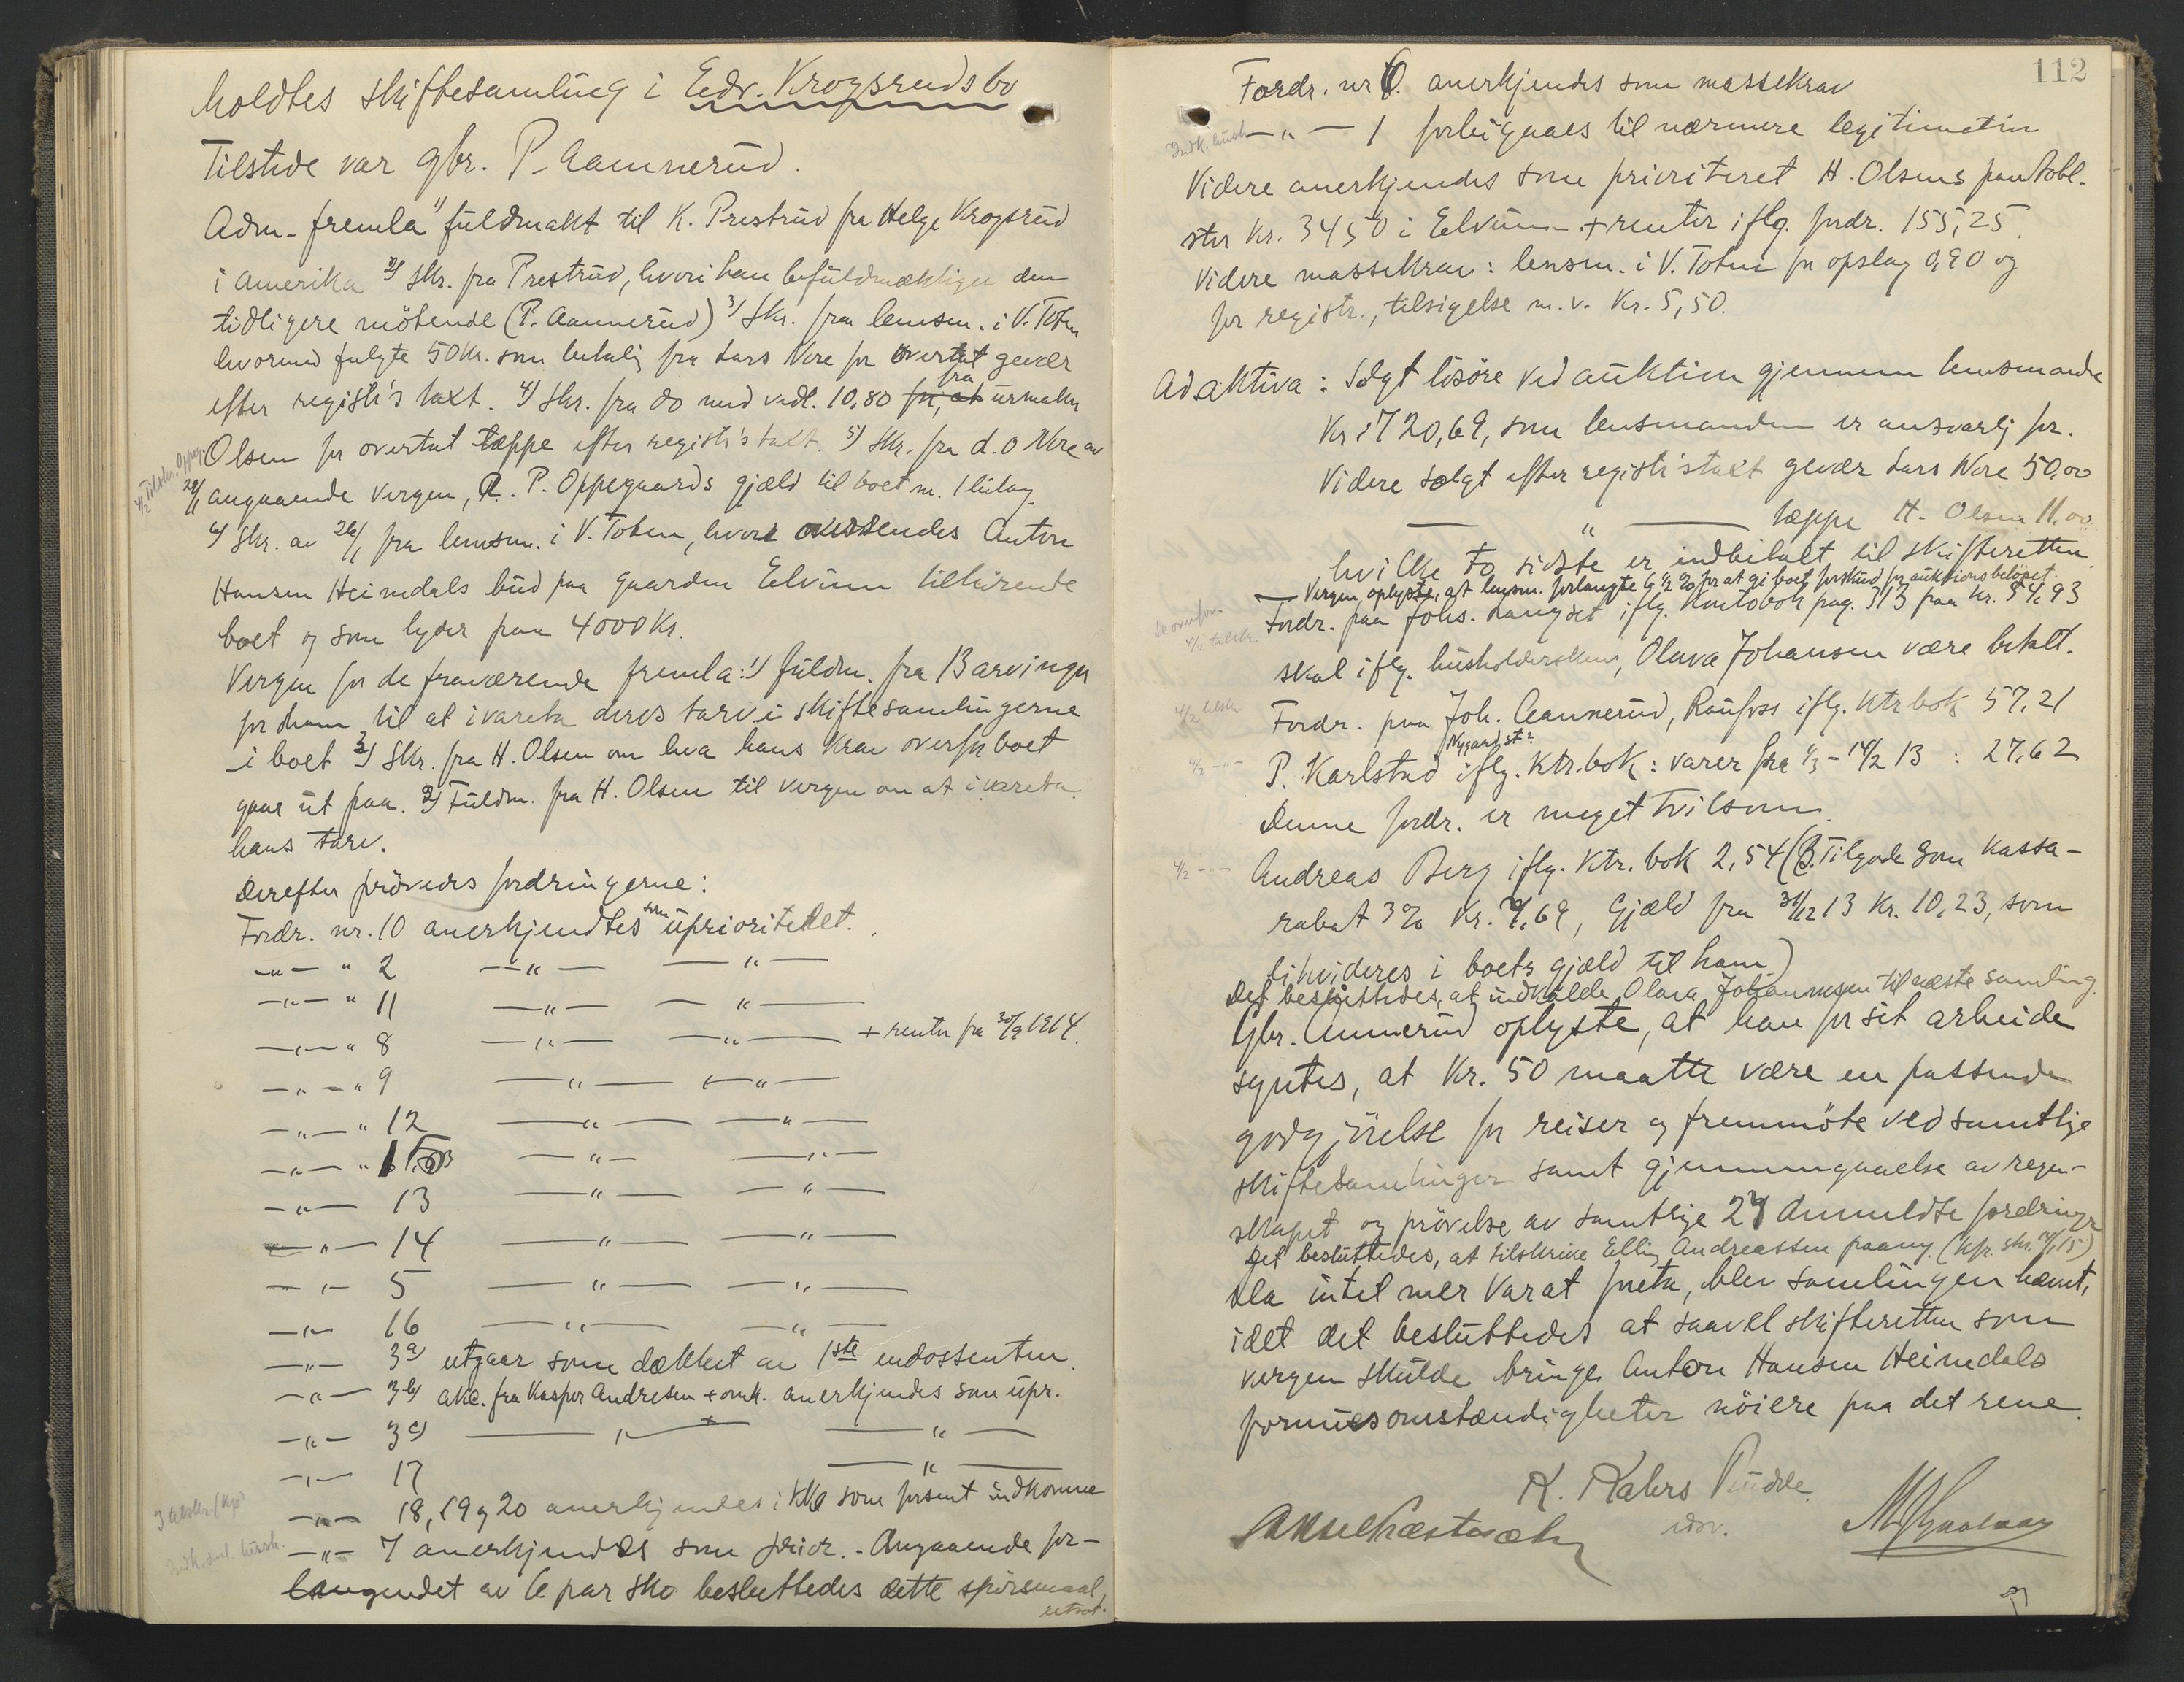 holdtes skiftesamling i Edv. Krogsruds bo
Tilstede var gbr. P. Aannerud.
Adm. fremla 1) fuldmakt til K. Prestrud fra Helge Krogsrud
i Amerika 2) skr. fra Prestrud, hvori han befuldmægtiger den
tidligere mötende (P. Aannerud) 3) skr. fra lensm. i V. Toten
hvormed fulgte 50 kr. som betaling fra Lars Nere for overtat gevær
efter registr's taxt. 4) skr. fra do med vedl. 10,80 fra urmaker
Olsen for overtat tæppe efter registr's takt. 5) skr. fra d.o Nere av
28/1 angaaende vergen, R. P. Oppegaards gjæld til boet m. 1 bilag
6) skr. av 26/1 fra lensm. i V. Toten, hvori oversendes Anton
Hansen Heimdals bud paa gaarden Eelvum tilhörende
boet og som lyder paa 4000 Kr.
Vergen for de fraværende fremla: 1) fuldm. fra 13 arvinger
for ham til at ivareta deres tarv i skiftesamlingerne
i boet 2) skr. fra H. Olsen om hva hans krav overfor boet
gaar ut paa. 3) Fuldm. fra H. Olsen til vergen om at ivareta
hans tarv.
Derefter prövedes fordringerne:
Fordr. nr. 10 anerkjendtes som uprioritetet.
—"— " 2 —"— —"—
—"— " 11 —"— —"—
—"— " 8 —"— —"— + renter fra 30/9 1914.
—"— " 9 —"— —"—
—"— " 12 —"— —"—
—"— " 15 —"— —"—
—"— 13 —"— —"—
—"— 14 —"— —"—
—"— 5 —"— —"—
—"— 16 —"— —"—
—"— 3a) utgaar som dækket av 1ste endossenten.
—"— 3b) akc. fra Kasper Andresen + omk. anerkjendes som upr.
—"— 3c) —"— —"—
—"— 17 —"—
—"— 18, 19 og 20 anerkjendes ikke som forsent indkomne
—"— 7 anerkjendes som prior. - Angaaende for-
langendet av 6 par sko besluttedes dette spörsmaal
utsat.
112
Fordr. nr 6. anerkjendes som massekrav
—"— 1 forbigaaes til nærmere legitimation
Videre anerkjendes som prioriteret H. Olsens pantobl.
stor kr. 3450 i Eelvum + renter iflg. fordr. 155,25.
Videre massekrav: lensm. i V. Toten for opslag 0,90 og
for registr., tilsigelse m.v. Kr. 5,50.
Ad aktiva: Solgt lösöre ved auktion gjennem lensmanden
Kr. 1720,69, som lensmanden er ansvarlig for.
Videre solgt efter registr's takt gevær Lars Nere 50,00
—"— tæppe H. Olsen 11,00
hvilke to sidste er indbetalt til skifteretten.
Vergen oplyste, at lensm. forlangte 6 1/2 % for at gi boet forskud for auktionsbelöpet.
Fordr. paa Johs. Langset iflg. Kontobok pag. 313 paa kr. 54,93
skal iflg. husholdersken, Olava Johansen være betalt.
Fordr. paa Joh. Aannerud, Raufoss iflg. ktr bok 57,21
P. Karlstad Nygard st? iflg. Ktr.bok: varer fra 1/3 - 14/2 13 : 27,62
Denne fordr. er meget tvilsom.
Andreas Berg iflg. Ktr. bok 2,54 (B. Tilgode som kassa-
rabat 3% kr. 7,69, Gjæld fra 31/12 13 Kr. 10,23, som
likvideres i boets gjæld til ham)
Det besluttedes, at indkalde Olava Johannesen til næste samling.
Gbr. Aannerud oplyste, at han for sit arbeide
syntes, at Kr. 50 maatte være en passende
godtgjörelse for reiser og fremmöte ved samtlige
skiftesamlinger samt gjennemgaaelse av regn-
skapet og prövelse av samtlige 24 anmeldte fordringer
Det besluttedes, at tilskrive Elling Andreassen paany.
Da intet mer var at foreta, blev samlingen hævet,
idet det besluttedes at saavel skifteretten som
vergen skulde bringe Anton Hansen Heimdals
formuesomstændigheter nöiere paa det rene.